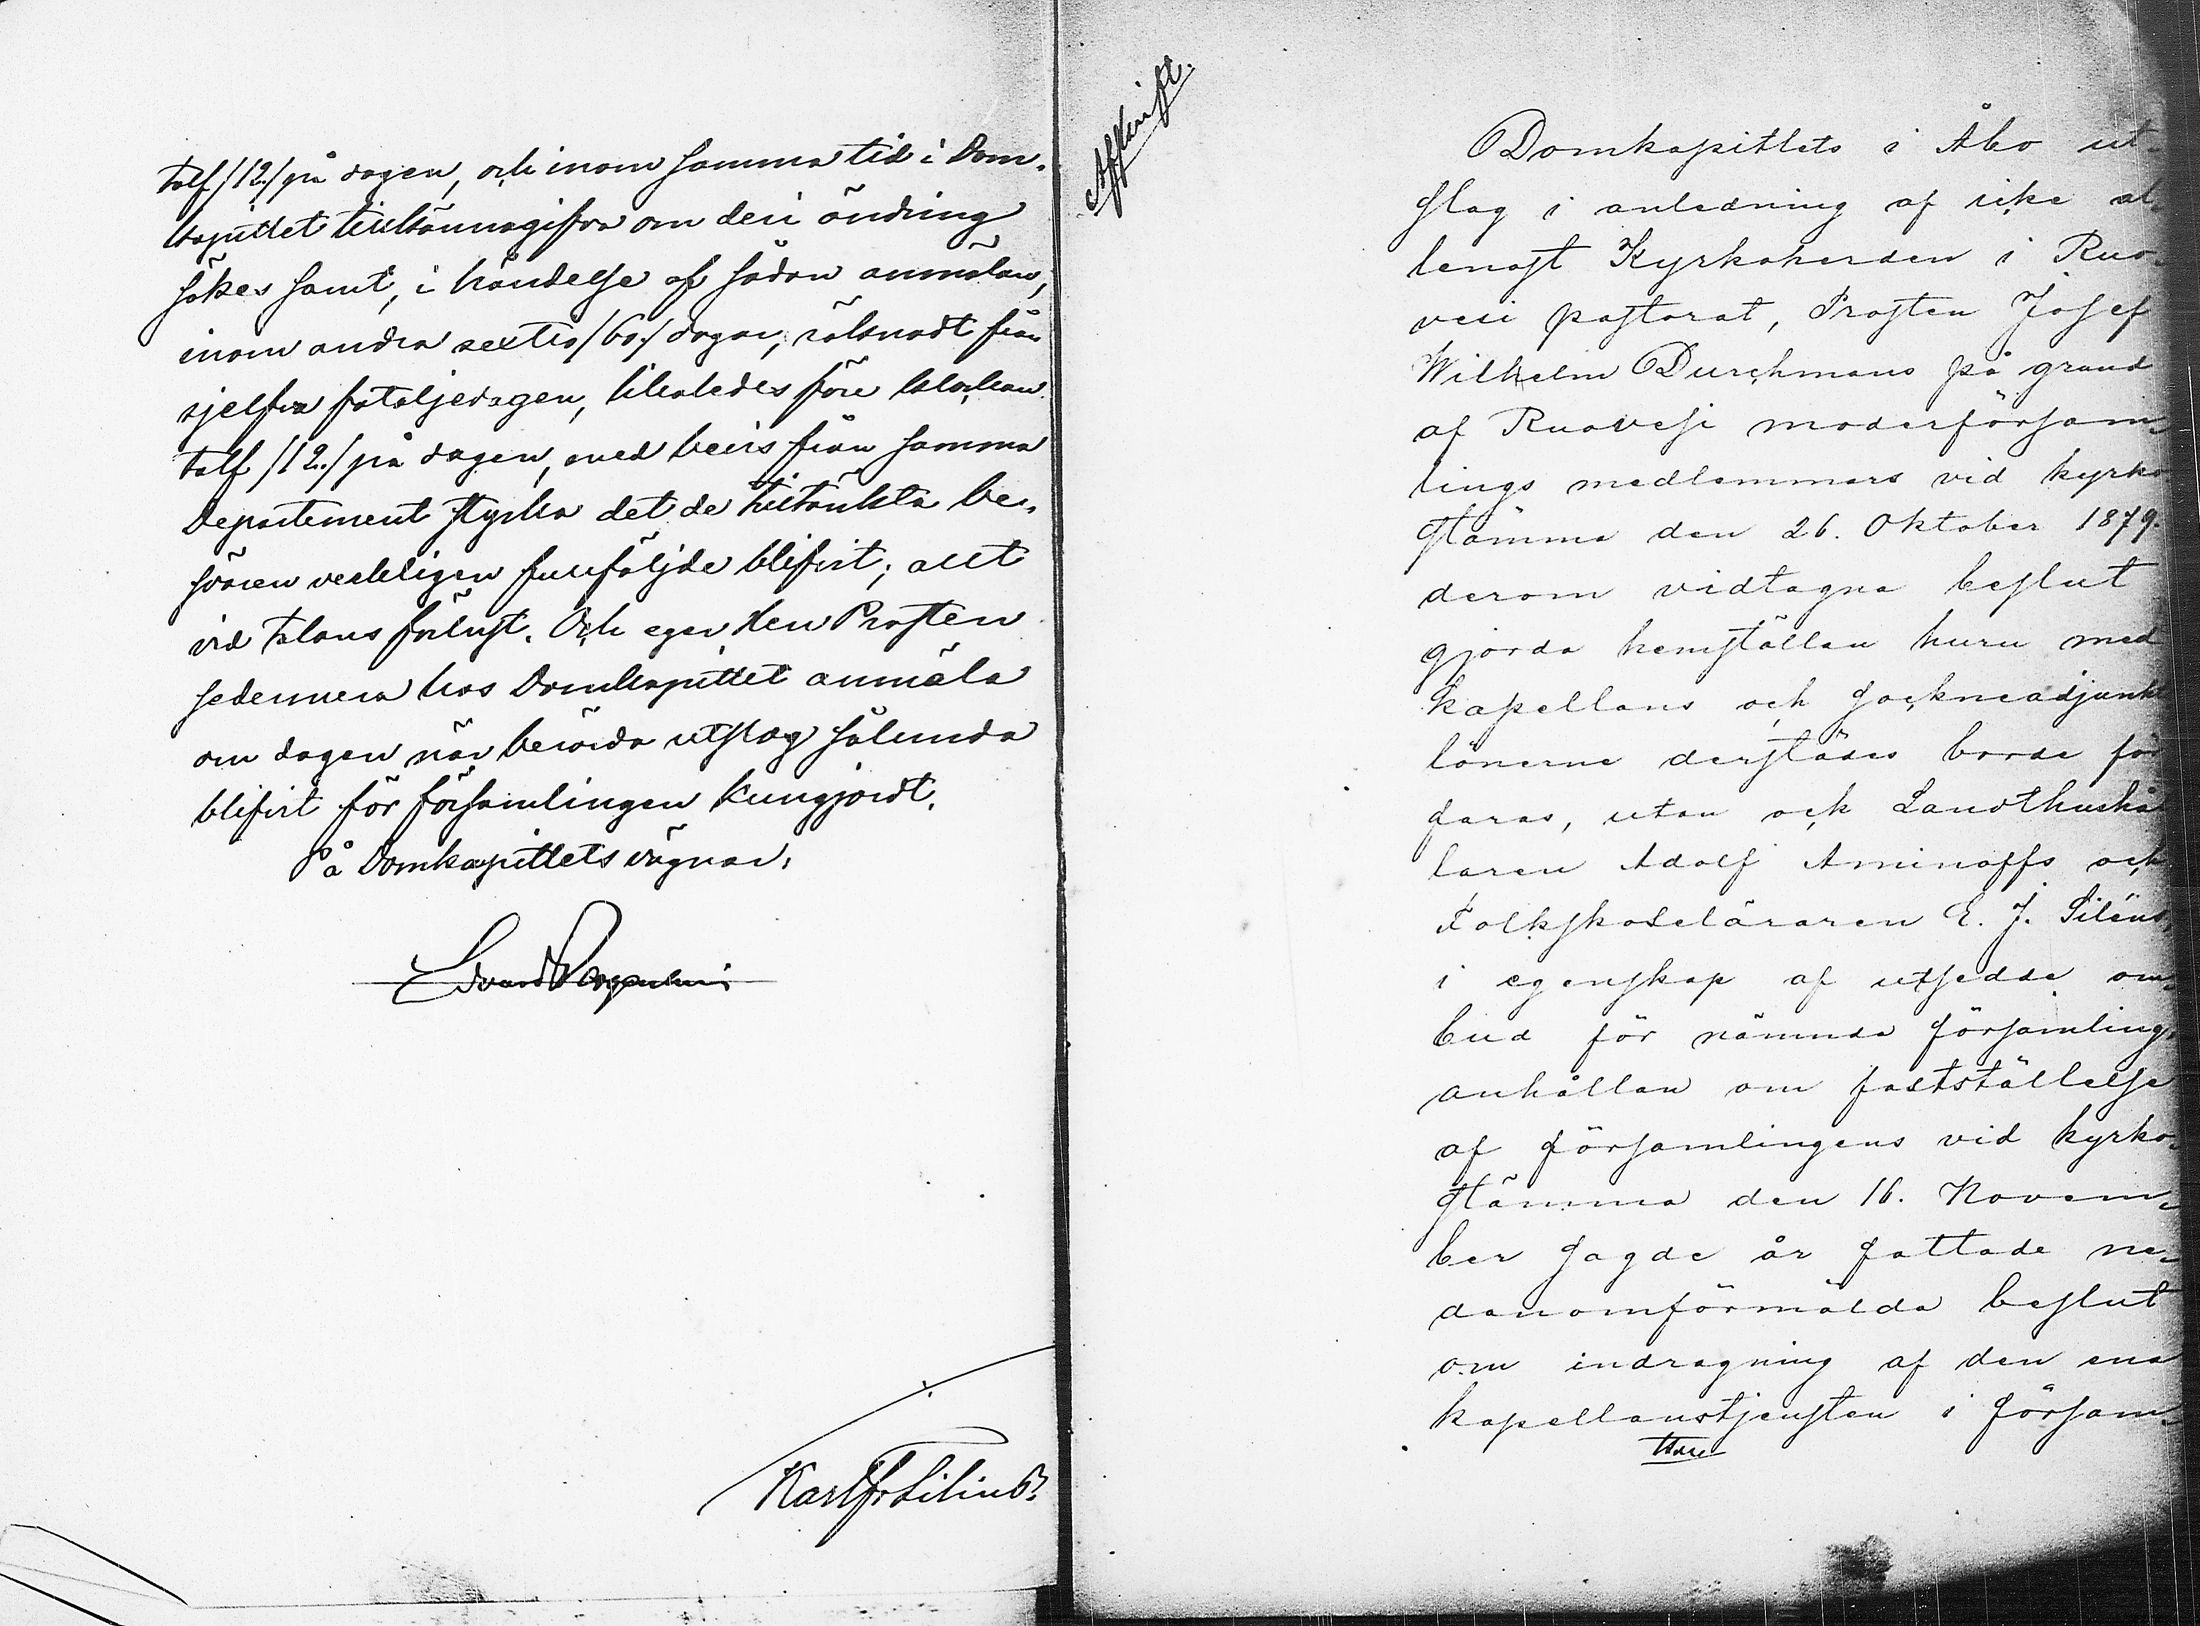 tolf /12./ på dagen, och inom samma tid i Dom-
kapitlet tillkännagifva om deri ändring
sökes samt, i händelse af sådan anmälan,
inom andra sextio /60./ dagar, räknadt från
sjelfva fataljedagen, likaledes före klockan
tolf /12./ på dagen, med bevis från samma
Departement styrka det de tilltänkta be-
svären verkligen fullföljde blifvit; allt
vid talans förlust. Och eger Herr Prosten
sedermera hos Domkapitlet anmäla
om dagen när berörda utslag sålunda
blifvit för församlingen kungjordt.
På Domkapitlets vägnar:
Karl Fr. Lilius
Afskrift.
Domkapitlets i Åbo ut-
slag i anledning af icke al-
lenast Kyrkoherden i Ruo-
vesi pastorat, Prosten Josef
Wilhelm Durchmans på grund
af Ruovesi moderförsam-
lings medlemmars vid kyrko-
stämma den 26. Oktober 1879.
derom vidtagna beslut
gjorda hemställan huru med
kapellans och sockneadjunkt
lönerne derstädes borde för
faras, utan ock Landthushål
laren Adolf Aminoffs och
Folkskoleläraren E. J. Siléns,
i egenskap af utsedda om-
bud för nämnda församling,
anhållan om fastställelse
af församlingens vid kyrko-
stämma den 16. Novem-
ber sagde år fattade ne-
danomförmälda beslut
om indragning af den ena
kapellanstjensten i försam-